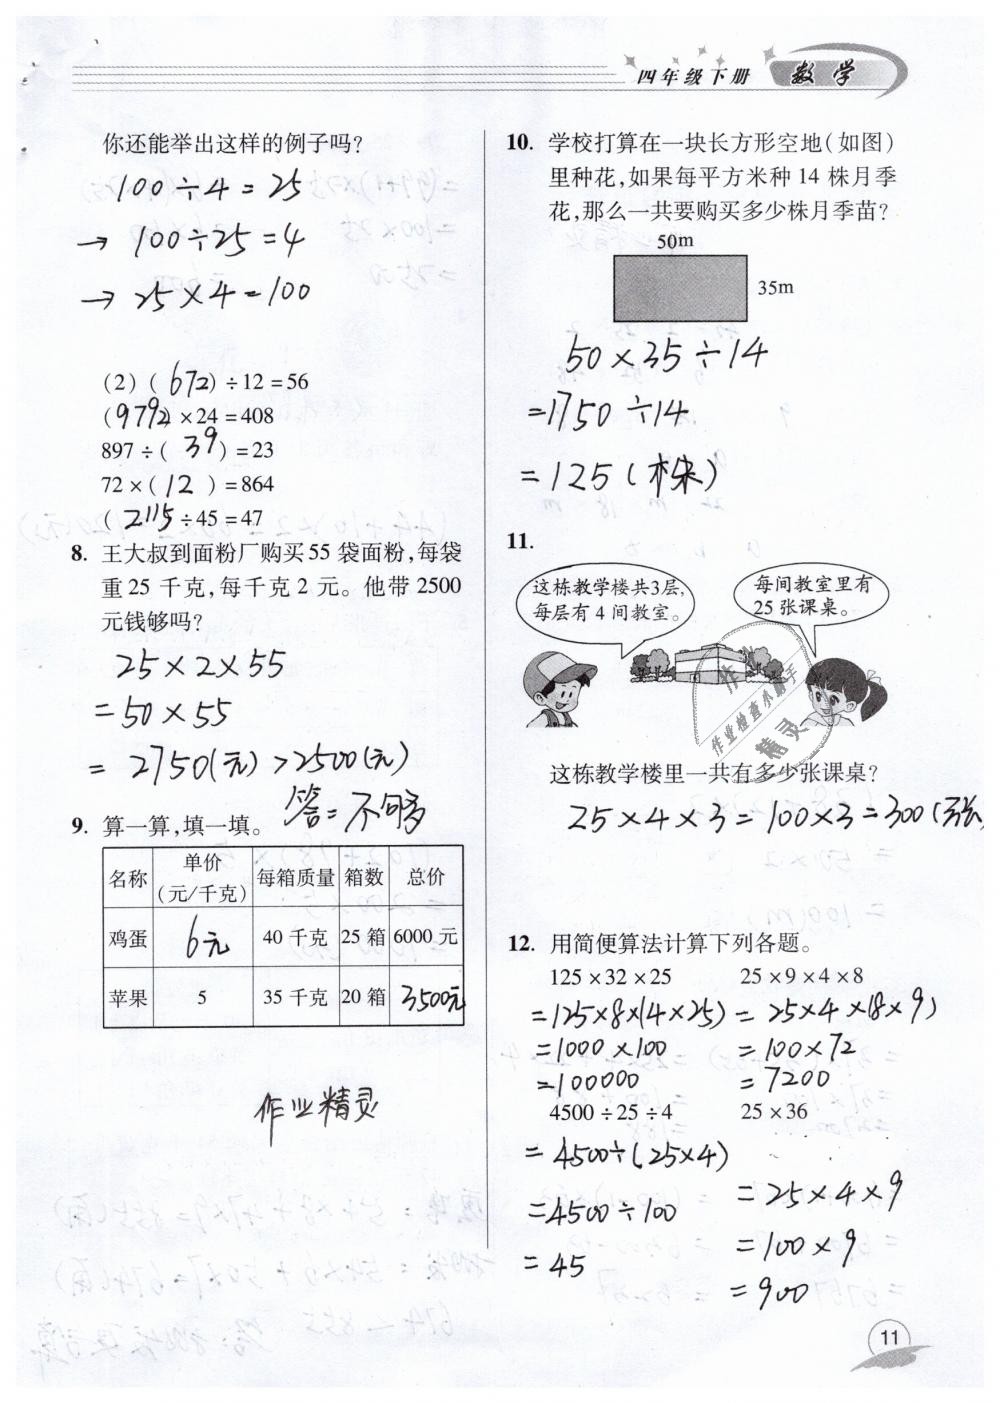 四年级下册 数学
你还能举出这样的例子吗?
100÷4=25
→ 100÷25=4
→ 25×4=100
(2) ( 672 ) ÷12=56
( 9792 ) ×24=408
897÷( 39 )=23
72×( 12 )=864
( 2115 ÷45=47
8. 王大叔到面粉厂购买55 袋面粉,每袋
重25 千克,每千克2 元。他带 2500
元钱够吗?
25×2×55
=50×55
= 2750(元) >2500(元)
答=不够
9. 算一算,填一填。
名称 单价(元/千克) 每箱质量 箱数 总价
鸡蛋 6元 40 千克 25 箱 6000 元
苹果 5 35 千克 20 箱 3500元
作业精灵
10. 学校打算在一块长方形空地(如图)
里种花,如果每平方米种 14 株月季
花,那么一共要购买多少株月季苗?
50m
35m
50×35÷14
=1750÷14
=125(株)
11.
这栋教学楼共3层,
每层有 4 间教室。
每间教室里有
25 张课桌。
作业检查小助手
精灵
这栋教学楼里一共有多少张课桌?
25×4×3=100×3=300(张
12. 用简便算法计算下列各题。
125×32×25 25×9×4×8
=125×8×(4×25) = 25×4×(8×9)
=1000×100 =100×72
=100000 =7200
4500÷25÷4 25×36
=4500÷(25×4)
=25×4×9
=4500÷100
=100×9
=45
=900
11